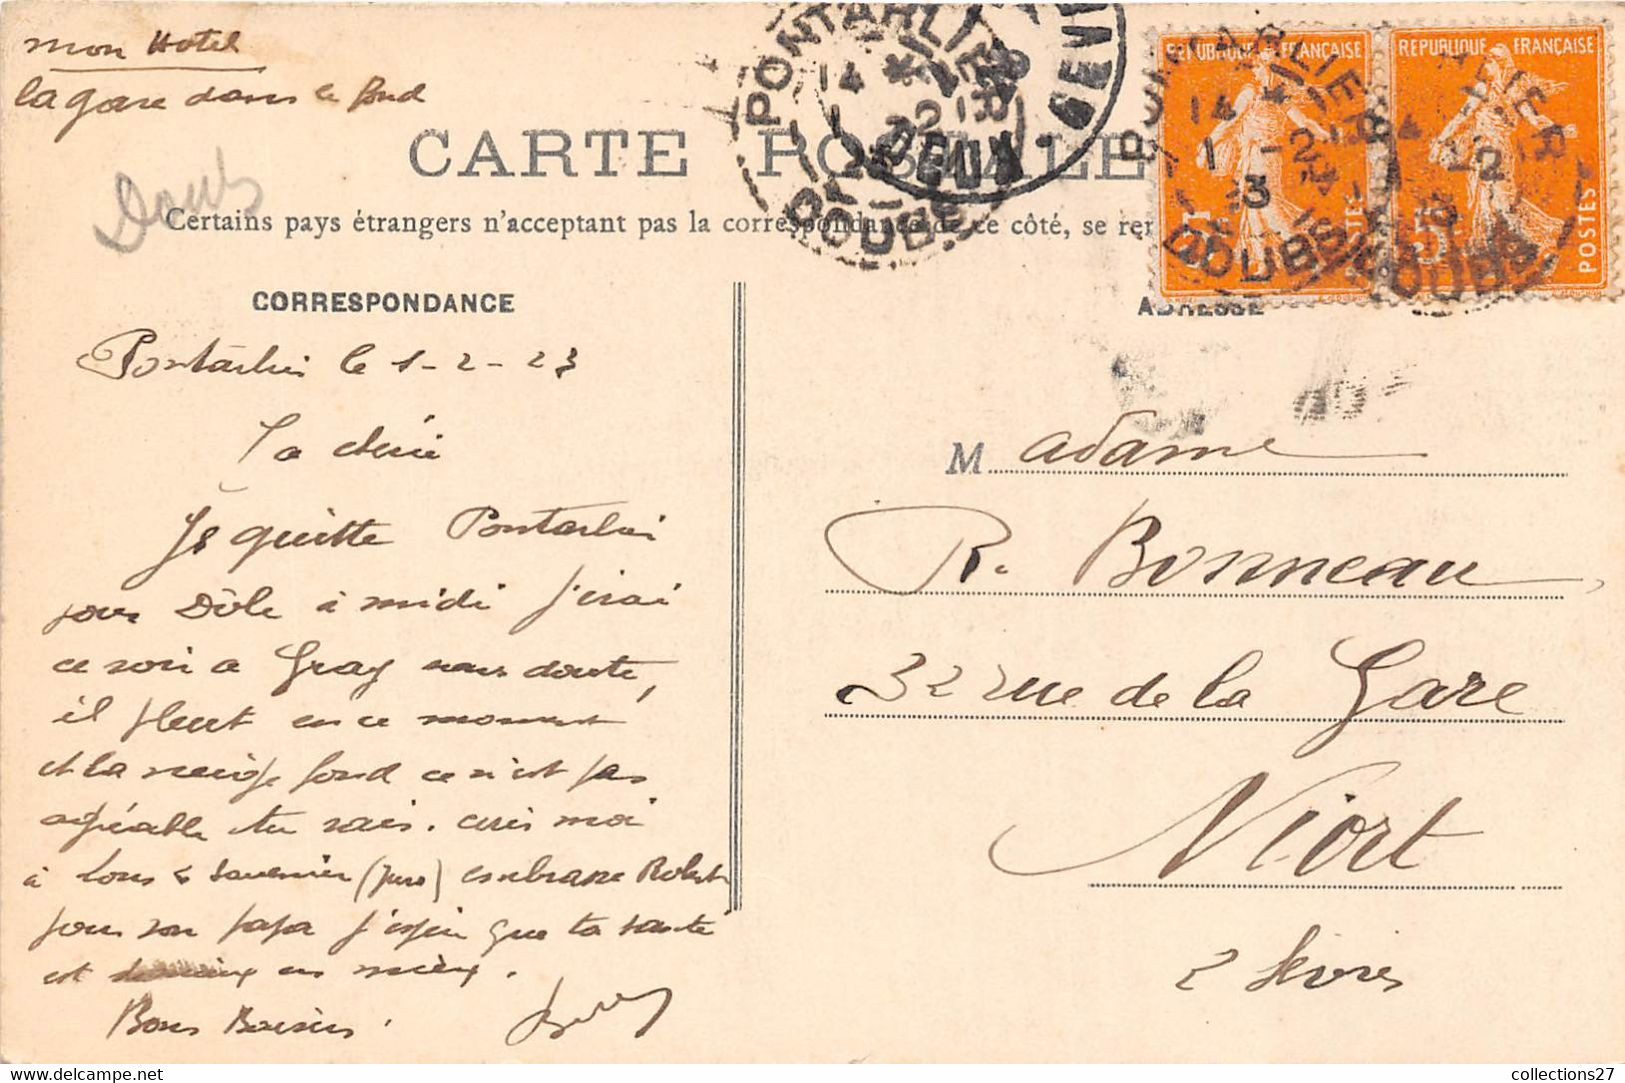 mon Hotel
la gare dans le fond
Doubs
CARTE POSTALE
Certains pays étrangers n'acceptant pas la correspondance de ce côté, se ren
PONTARLIER
14 *
DOUBS
DEUX-SEV
REPUBLIQUE FRANÇAISE
POSTES
REPUBLIQUE FRANÇAISE
5c
POSTES
CORRESPONDANCE
ADRESSE
Pontarlier le 1-2-23
Ta chérie
Je quitte Pontarlier
pour Dôle à midi j'irai
ce soir a Gray sans doute,
il pleut en ce moment
et la neige fond ce n'est pas
agréable tu sais. écris moi
à Lons le Saunier (Jura) embrasse Robert
pour son papa j'espère que ta santé
est de mieux en mieux.
Bons Baisers.
M adame
R. Bonneau
32 rue de la Gare
Niort
2 Sèvres
www.delcampe.net
collections27